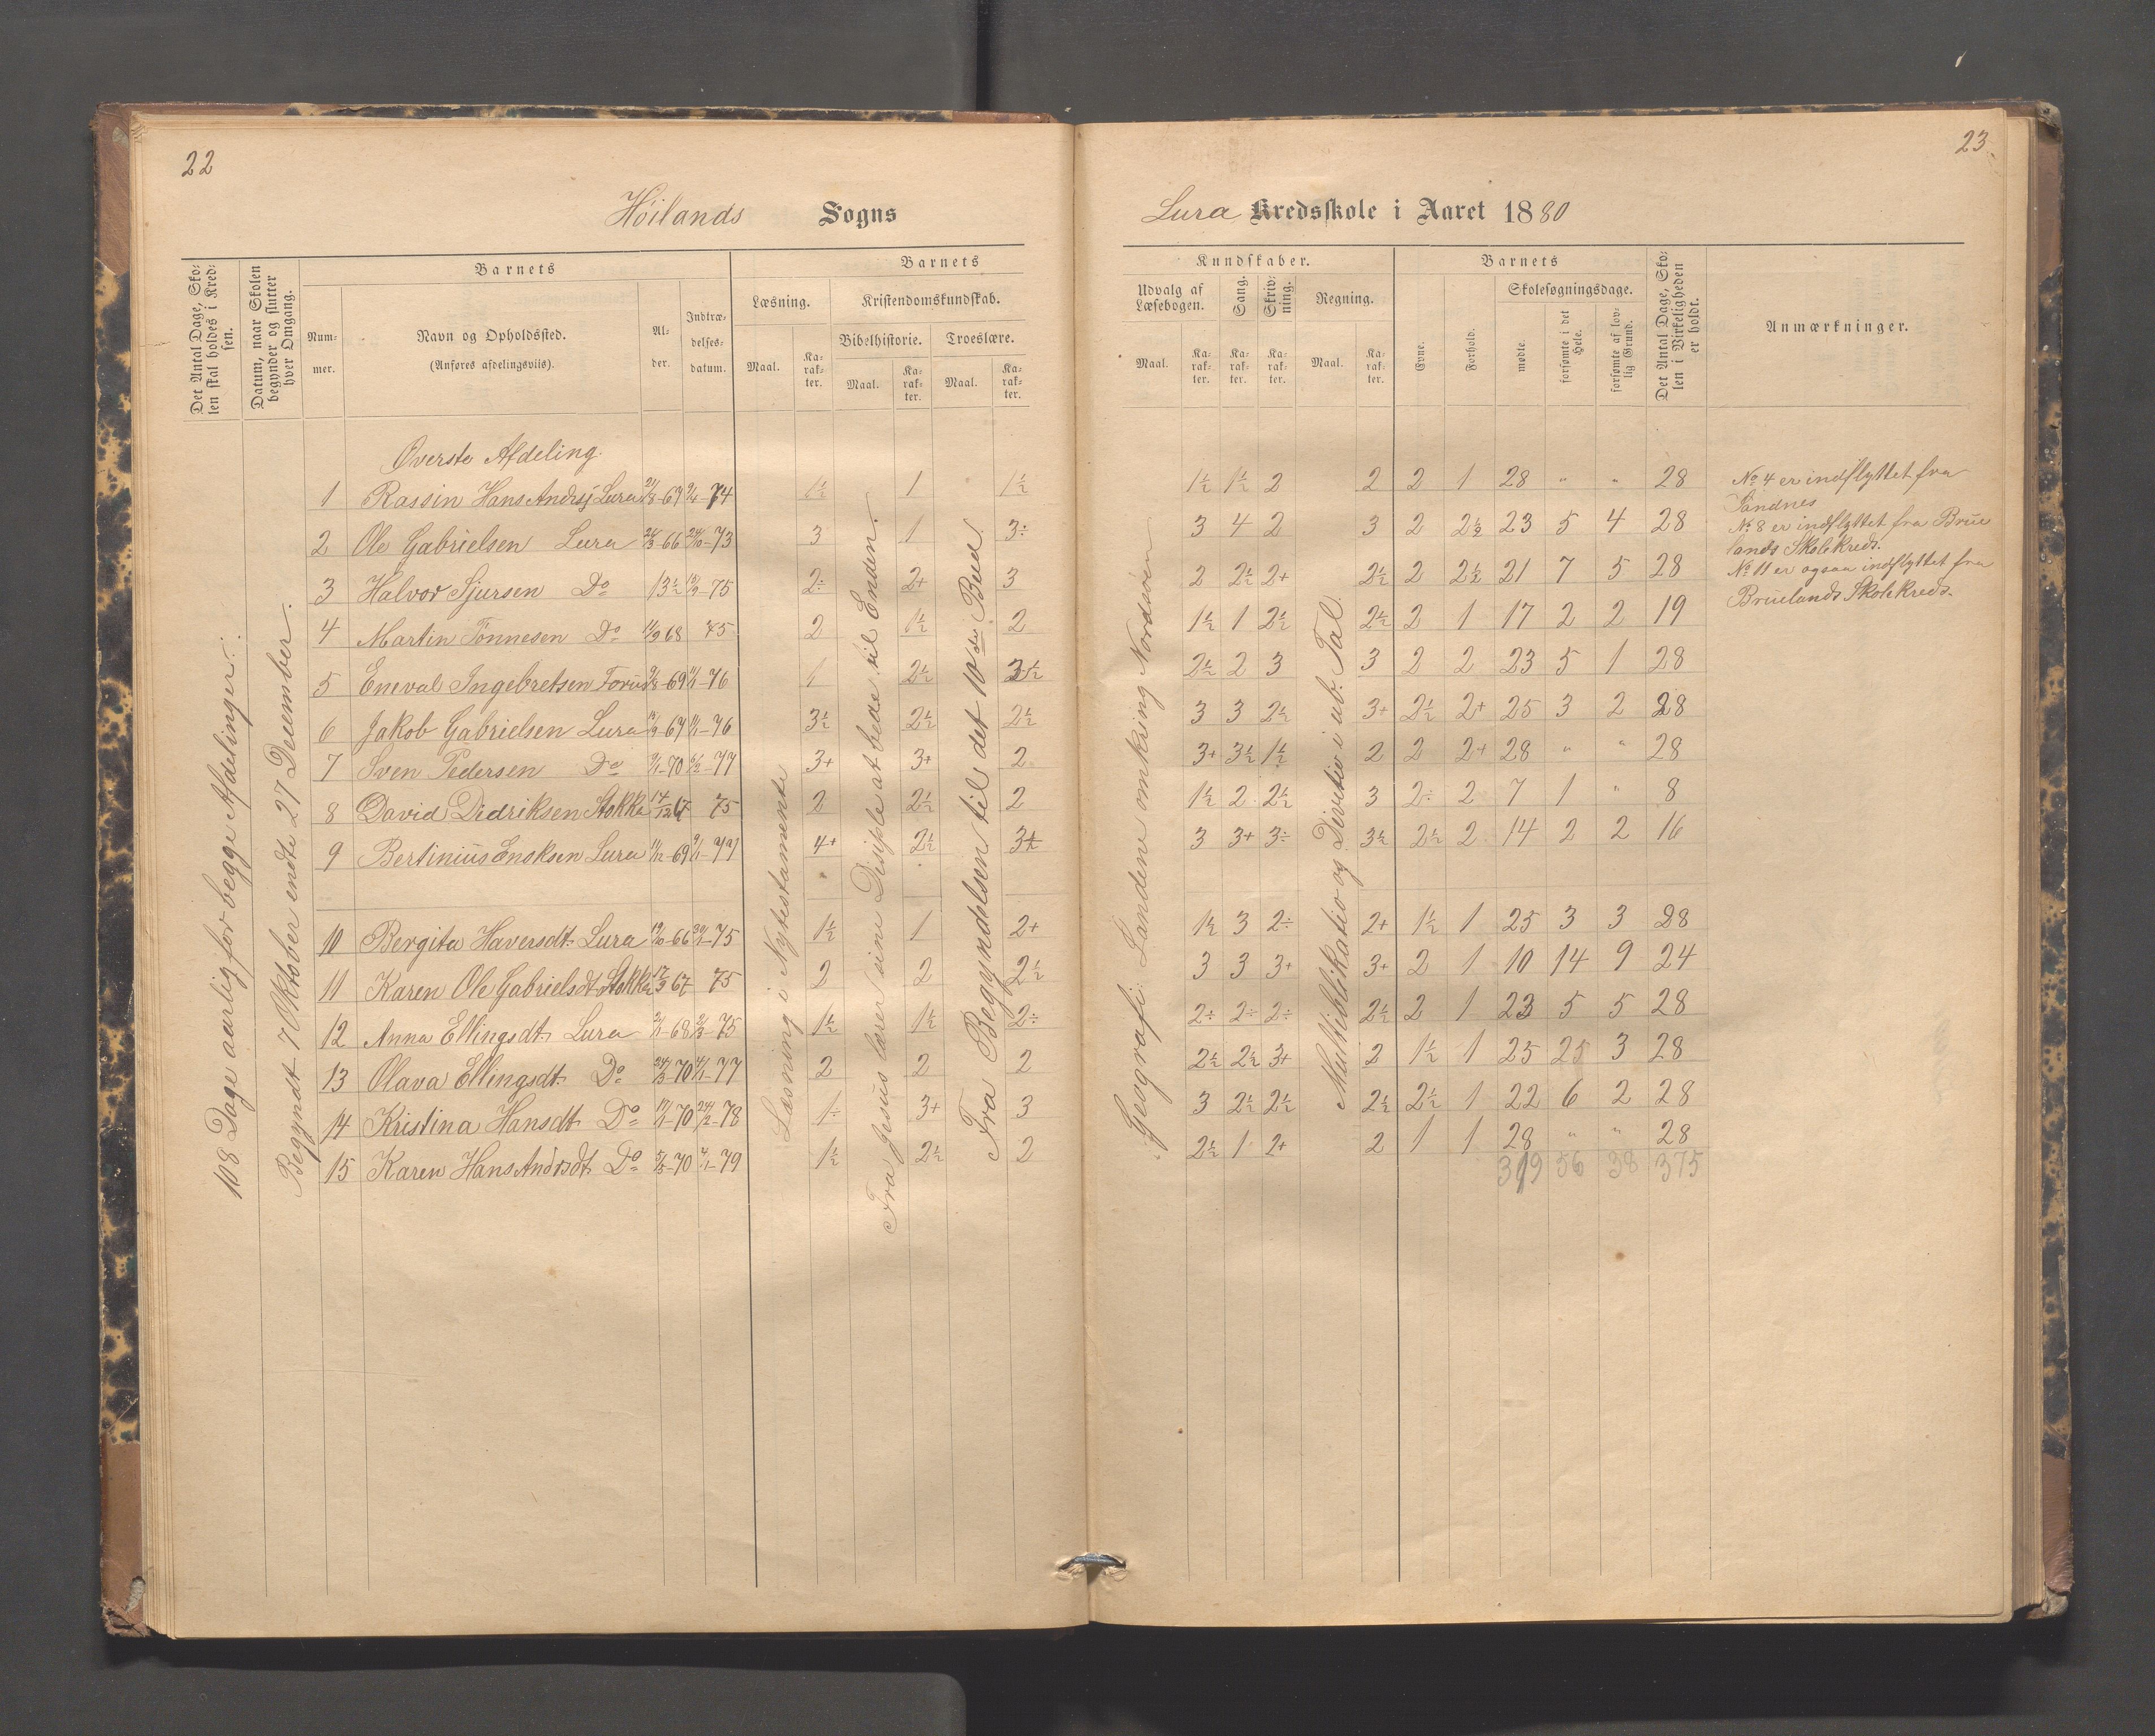 22
Höilands Sogns
Det Antal Dage, Sko-
len skal holdes i Kred-
sen.
Datum, naar Skolen
begynder og slutter
hver Omgang.
Barnets
Num-
mer.
Navn og Opholdssted.
(Anføres afdelingsviis).
Al-
der.
Indtræ-
delses-
datum.
Barnets
Læsning.
Kristendomskundskab.
Bibelhistorie. Troeslære.
Maal. Ka-rak-ter. Maal. Ka-rak-ter. Maal. Ka-rak-ter.
108 Dage aarlig for begge Afdelinger.
Begyndt 7 Oktober endte 27 December.
Læsning i Nytestamente
Fra Jesus lærer sine Disiple at bede til Enden.
Fra Begyndelsen til det 10de Bud.
Øverste Afdeling.
1 Rassin Hans Andrsj Lura 74 1½ 1 1½
2 Ole Gabrielsen Lura 66 73 3 1 3÷
3 Halvor Sjursen Do 13½ 75 2÷ 2+ 3
4 Martin Tönnesen Do 11/9 68 75 2 1½ 2
5 Eneval Ingebretsen Forus 69 76 1 2½
6 Jakob Gabrielsen Lura 76 3½ 2½ 2½
7 Sven Pedersen Do 70 77 3+ 3+ 2
8 David Didriksen Stokka 14/12 67 75 2 2½ 2
9 Bertinius Enoksen Lura 11/12 69 77 4+ 2½
10 Bergita Haversdt. Lura 66 75 1½ 1 2+
11 Karen Ole Gabrielsdt Stokka 67 75 2 2 2½
12 Anna Ellingsdt. Lura 68 75 1½ 1½ 2÷
13 Olava Ellingsdt. Do 70 77 2 2 2
14 Kristina Hansdt. Do 70 78 1÷ 3+ 3
15 Karen Hans Andrsdt. Do 70 79 1½ 2½ 2
23
Lura Kredsskole i Aaret 1880
Kundskaber.
Udvalg af
Læsebogen.
Sang.
Skriv-
ning.
Regning.
Maal. Ka-rak-ter. Ka-rak-ter. Ka-rak-ter. Maal. Ka-rak-ter.
Barnets
Evne.
Forhold.
Skolesøgningsdage.
mødte.
forsømte i det
Hele.
forsømte af lov-
lig Grund.
Det Antal Dage, Sko-
len i Virkeligheden
er holdt.
Anmærkninger.
Geografi: Landene omkring Nordsöen
Multiblikatio og Divitio i ub. Tal.
1½ 1½ 2 2 2 1 28 " " 28
3 4 2 3 2 2½ 23 5 4 28
2 2½ 2+ 2½ 2 2½ 21 7 5 28
1½ 1 2½ 2½ 2 1 17 2 2 19
2½ 2 3 3 2 2 23 5 1 28
3 3 2½ 3+ 2½ 2+ 25 3 2 28
3+ 3½ 1½ 2 2 2+ 28 " " 28
1½ 2 2½ 3 2÷ 2 7 1 " 8
3 3+ 3÷ 3½ 2½ 2 14 2 2 16
1½ 3 2÷ 2+ 1½ 1 25 3 3 28
3 3 3+ 3+ 2 1 10 14 9 24
2÷ 2÷ 2÷ 2½ 2 1 23 5 5 28
2½ 2½ 3+ 2 1½ 1 25 25 3 28
3 2½ 2½ 2½ 2½ 1 22 6 2 28
2½ 1 2+ 2 1 1 28 " " 28
319 56 38 375
No 4 er indflyttet fra
Sandnes
No 8 er indflyttet fra Brue
lands Skolekreds.
No 11 er ogsaa indflyttet fra
Bruelands Skolekreds.